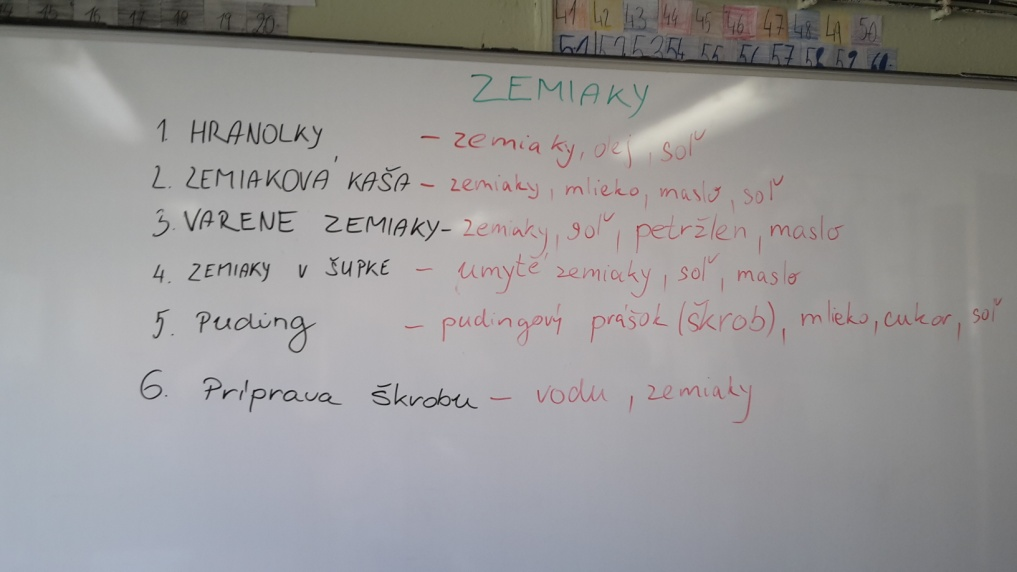 15 16 17 18 19 20
41 42 43 44 45 46 47 48 49 50
51 52 53 54 55 56 57 58 59 60
ZEMIAKY
1. HRANOLKY - zemiaky, olej, soľ
2. ZEMIAKOVÁ KAŠA - zemiaky, mlieko, maslo, soľ
3. VARENE ZEMIAKY - zemiaky, soľ, petržlen, maslo
4. ZEMIAKY V ŠUPKE - umyté zemiaky, soľ, maslo
5. Puding - pudingový prášok (škrob), mlieko, cukor, soľ
6. Príprava škrobu - vodu, zemiaky